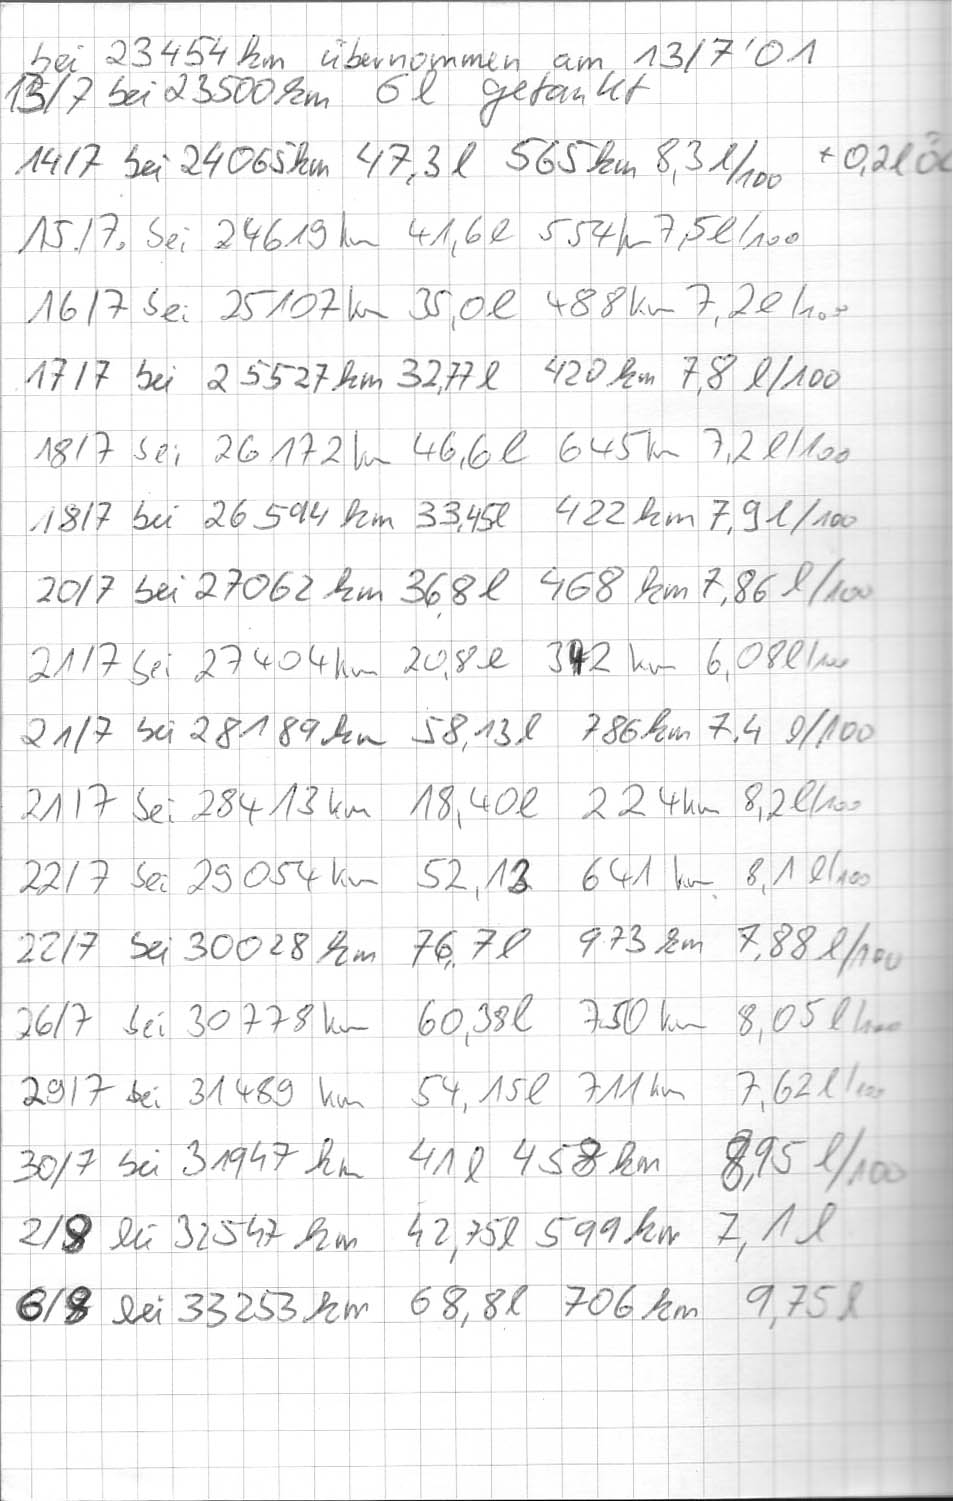 bei 23454 km übernommen am 13/7'01
13/7 bei 23500 km 6 l getankt
14/7 bei 24065 km 47,3 l 565 km 8,3 l/100 + 0,2 l Öl
15/7. bei 24619 km 41,6 l 554 km 7,5 l/100
16/7 bei 25107 km 35,0 l 488 km 7,2 l/100
17/7 bei 25527 km 32,77 l 420 km 7,8 l/100
18/7 bei 26172 km 46,6 l 645 km 7,2 l/100
18/7 bei 26594 km 33,45 l 422 km 7,9 l/100
20/7 bei 27062 km 36,8 l 468 km 7,86 l/100
21/7 bei 27404 km 20,8 l 342 km 6,08 l/100
21/7 bei 28189 km 58,13 l 786 km 7.4 l/100
21/7 bei 28413 km 18,40 l 224 km 8,2 l/100
22/7 bei 29054 km 52,13 641 km 8,1 l/100
22/7 bei 30028 km 76,7 l 973 km 7,88 l/100
26/7 bei 30778 km 60,38 l 750 km 8,05 l/100
29/7 bei 31489 km 54,15 l 711 km 7,62 l/100
30/7 bei 31947 km 41 l 458 km 8,95 l/100
2/8 bei 32547 km 42,75 l 599 km 7,1 l
6/8 bei 33253 km 68,8 l 706 km 9,75 l